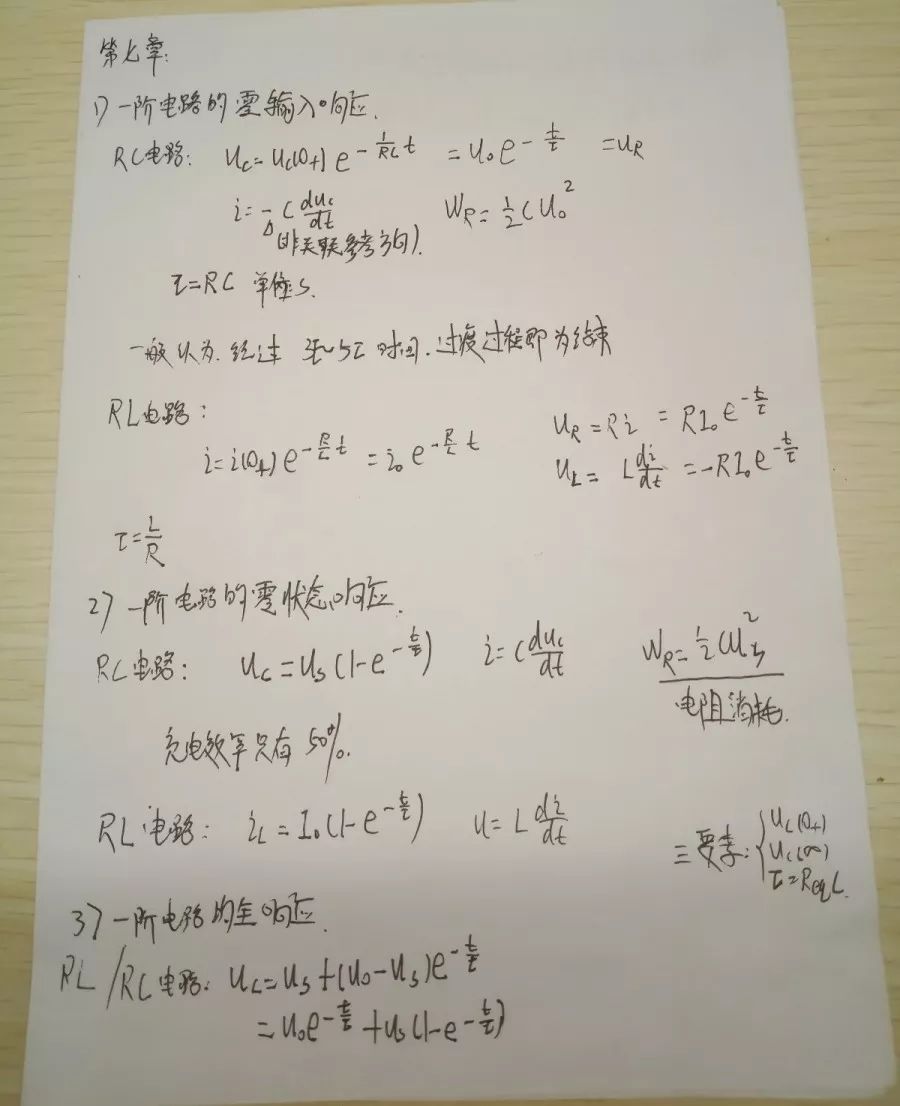 第七章:
1) 一阶电路的零输入响应.
RC电路: u_C=u_C(0+)e^{-\frac{1}{RC}t} =u_0e^{-\frac{t}{τ}} =u_R
i=-C\frac{du_C}{dt} W_R=\frac{1}{2}CU_0^2
(非关联参考方向).
τ=RC 单位s.
一般认为.经过 3τ~5τ 时间.过渡过程即为结束
RL电路:
u_R=Ri=RI_0e^{-\frac{t}{τ}}
i=i(0+)e^{-\frac{R}{L}t}=i_0e^{-\frac{R}{L}t}
u_L=L\frac{di}{dt}=-RI_0e^{-\frac{t}{τ}}
τ=\frac{L}{R}
2) 一阶电路的零状态响应.
RC电路: u_C=u_S(1-e^{-\frac{t}{τ}}) i=C\frac{du_C}{dt} W_R=\frac{1}{2}CU_S^2
电阻消耗.
充电效率只有50%.
RL电路: i_L=I_0(1-e^{-\frac{t}{τ}}) u=L\frac{di}{dt}
三要素: { u_C(0+)
u_C(∞)
τ=R_{eq}C.
3) 一阶电路的全响应.
RL/RC电路: u_C=u_S+(u_0-u_S)e^{-\frac{t}{τ}}
=u_0e^{-\frac{t}{τ}}+u_S(1-e^{-\frac{t}{τ}})